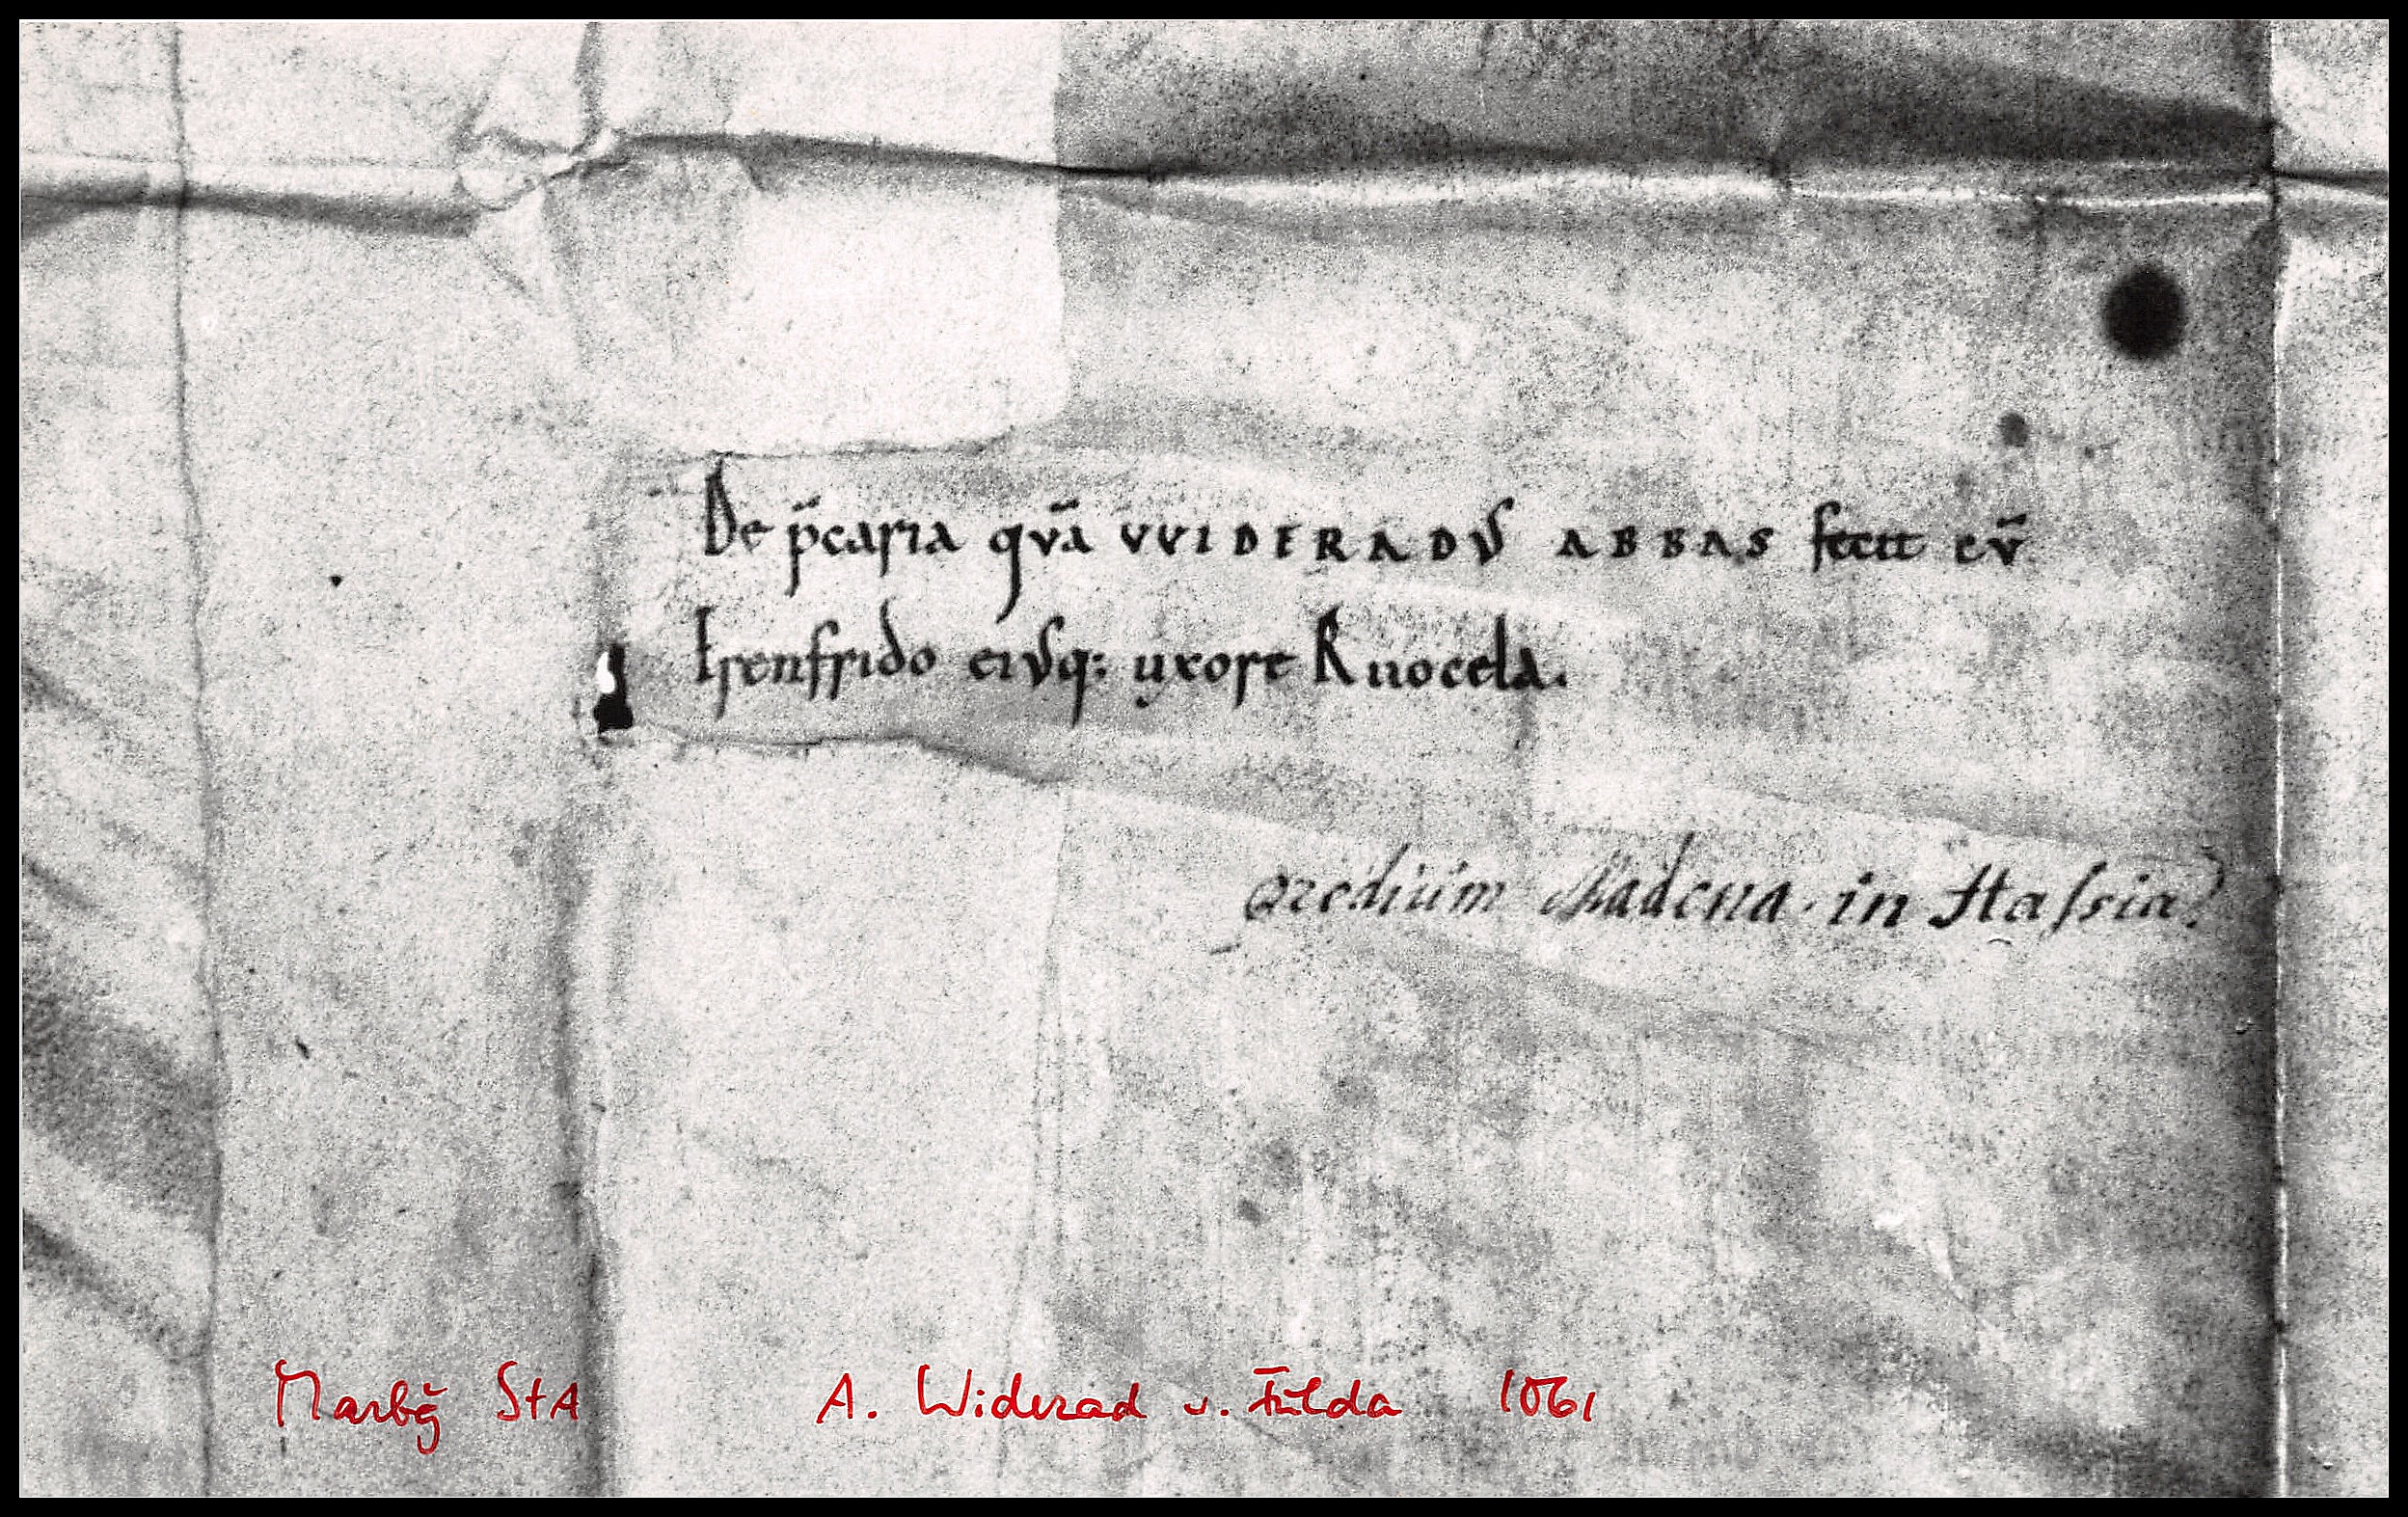 De p̄caria qvā VVIDERADVS ABBAS fecit cv̄
Irenfrido eivsq: uxore Ruocela.
Predium Madena in Hassia.
Marbg̃ StA A. Widerad v. Fulda 1061